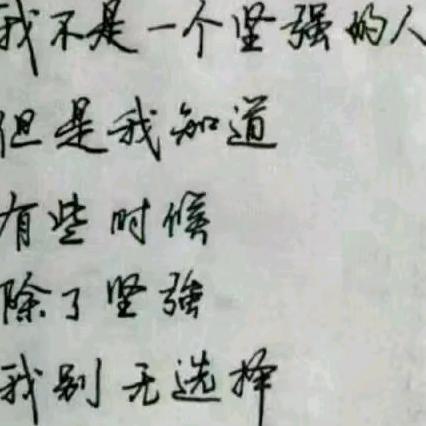 我不是一个坚强的人
但是我知道
有些时候
除了坚强
我别无选择